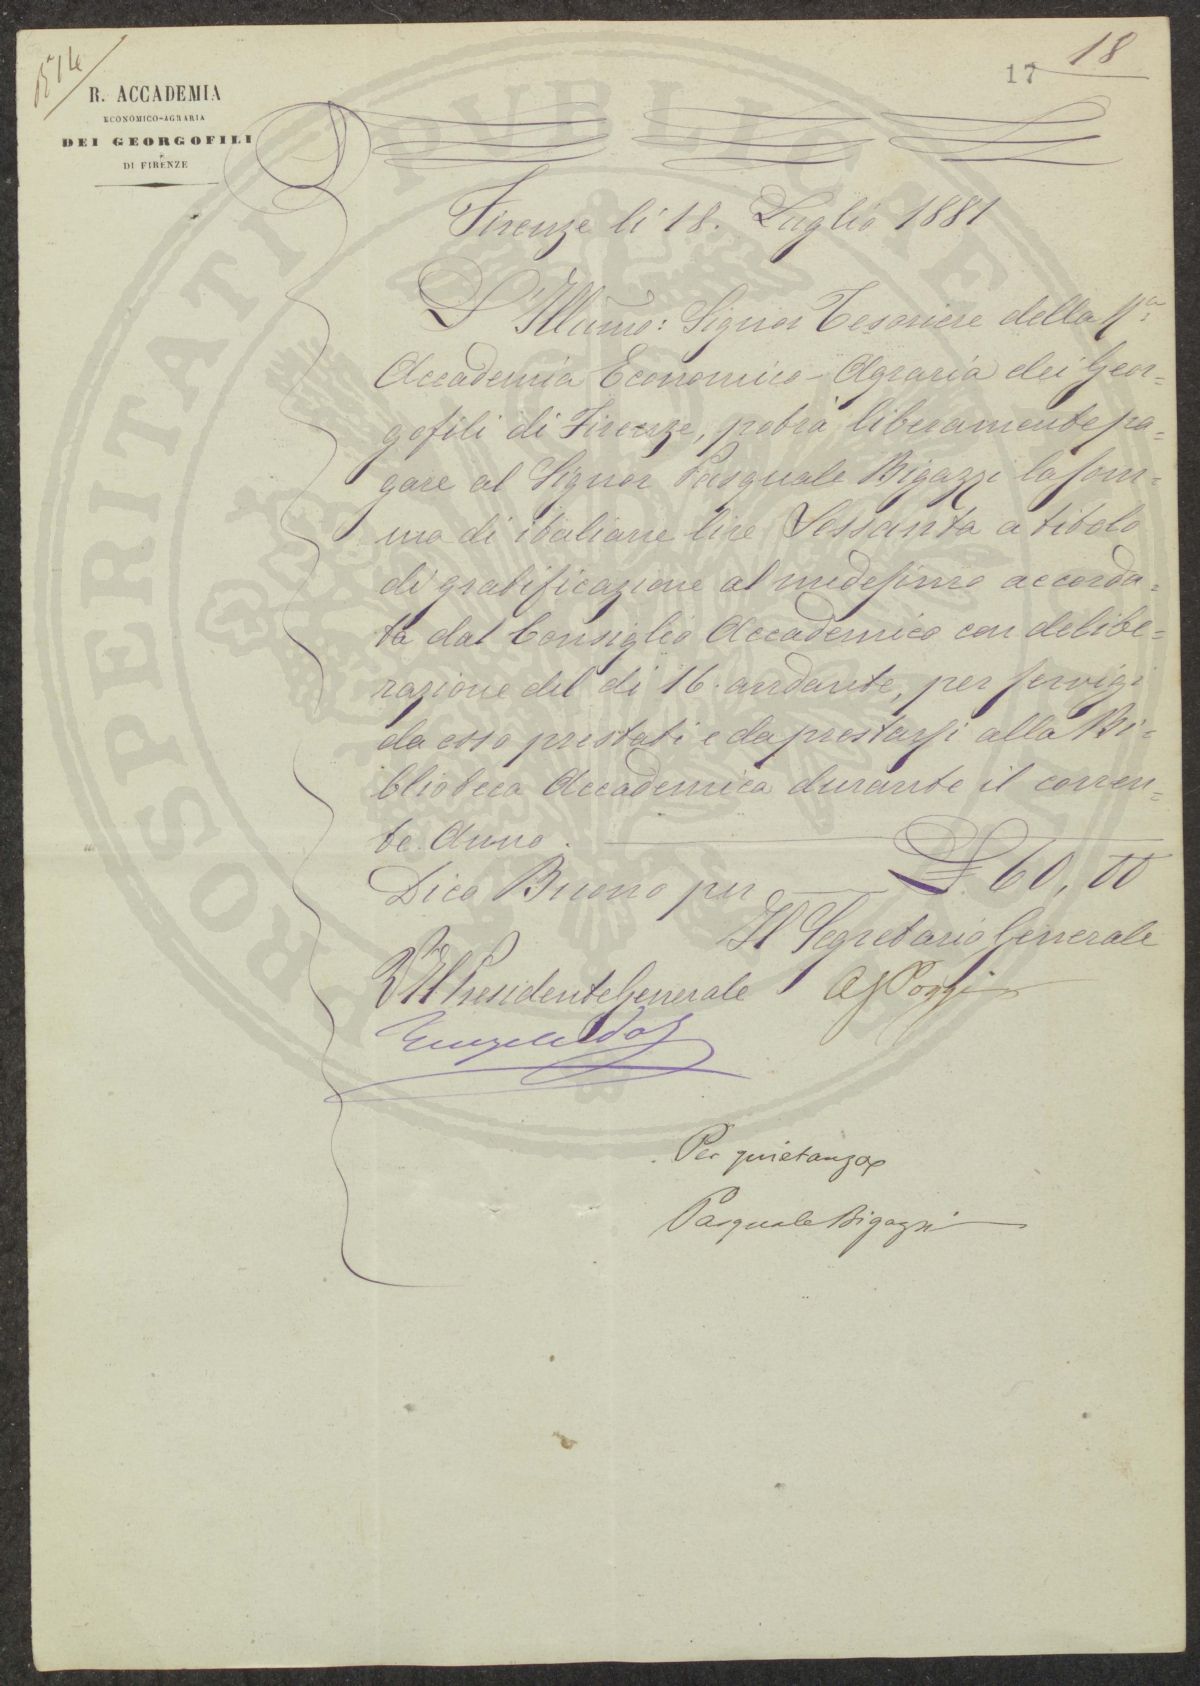 17 18
R. ACCADEMIA
ECONOMICO-AGRARIA
DEI GEORGOFILI
DI FIRENZE
Firenze li 18. Luglio 1881
L'Illumo: Signor Tesoriere della Ra:
Accademia Economico-Agraria dei Geor=
gofili di Firenze, potrà liberamente pa=
gare al Signor Pasquale Bigazzi la som=
ma di italiane lire Sessanta a titolo
di gratificazione al medesimo accorda=
ta dal Consiglio Accademico con delibe=
razione del di 16. andante, per servigi
da esso prestati e da prestarsi alla Bi=
blioteca Accademica durante il corren=
te Anno.
Dico Buono per L. 60,00
Il Segretario Generale
Il Presidente Generale
Per quietanza
Pasquale Bigazzi
PROSPERITATI PUBLICAE